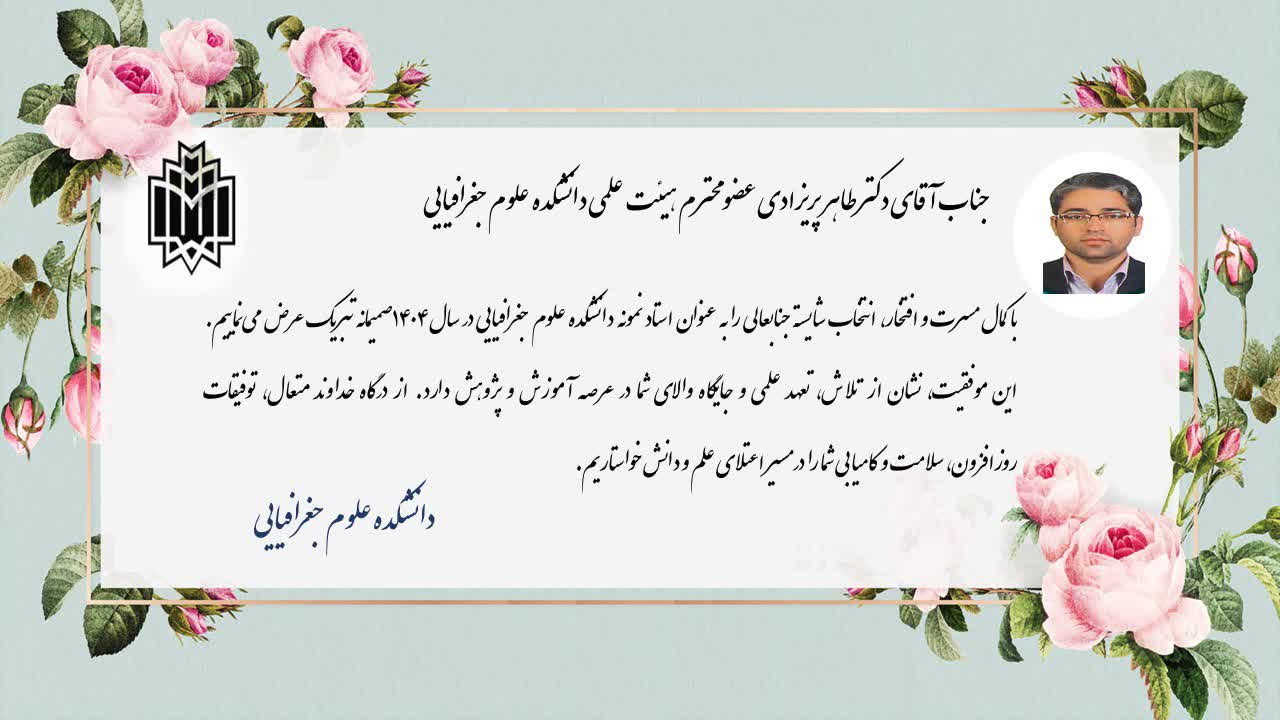 جناب آقای دکتر طاهر پریزادی عضو محترم هیئت علمی دانشکده علوم جغرافیایی
با کمال مسرت و افتخار، انتخاب شایسته جنابعالی را به عنوان استاد نمونه دانشکده علوم جغرافیایی در سال ۱۴۰۴ صمیمانه تبریک عرض می نماییم.
این موفقیت، نشان از تلاش، تعهد علمی و جایگاه والای شما در عرصه آموزش و پژوهش دارد. از درگاه خداوند متعال، توفیقات
روز افزون، سلامت و کامیابی شما را در مسیر اعتلای علم و دانش خواستاریم.
دانشکده علوم جغرافیایی